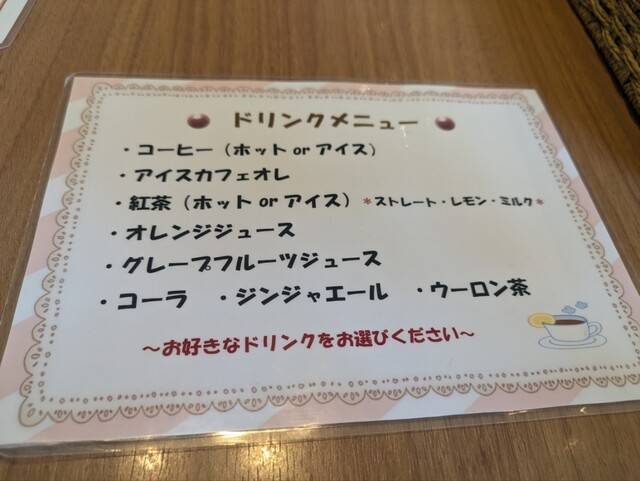 ドリンクメニュー
・コーヒー（ホット or アイス）
・アイスカフェオレ
・紅茶（ホット or アイス）＊ストレート・レモン・ミルク＊
・オレンジジュース
・グレープフルーツジュース
・コーラ ・ジンジャエール ・ウーロン茶
～お好きなドリンクをお選びください～